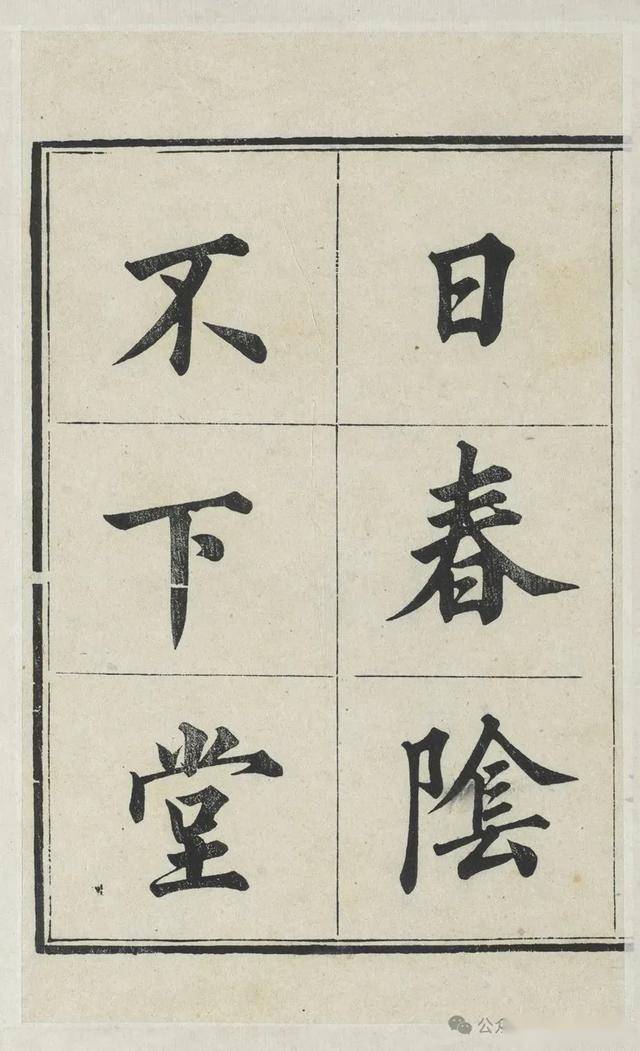 日春陰
不下堂
公众